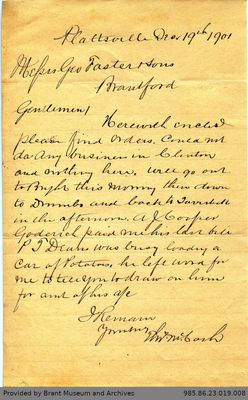 Plattsville Dec 19th 1901
Messrs Geo Foster & Sons
Brantford
Gentlemen
Herewith enclosed
please find orders. Could not
do any business in Clinton
and nothing here. Will go out
to Bright this morning then down
to Drumbo and back to
in the afternoon. A J Cooper
Goderich paid me his last bill
P T Deans was busy loading a
Car of Potatoes, he left word for
me to tell you to draw on him
for amt of his a/c
I Remain
Yours truly
Provided by Brant Museum and Archives
985.86.23.019.008